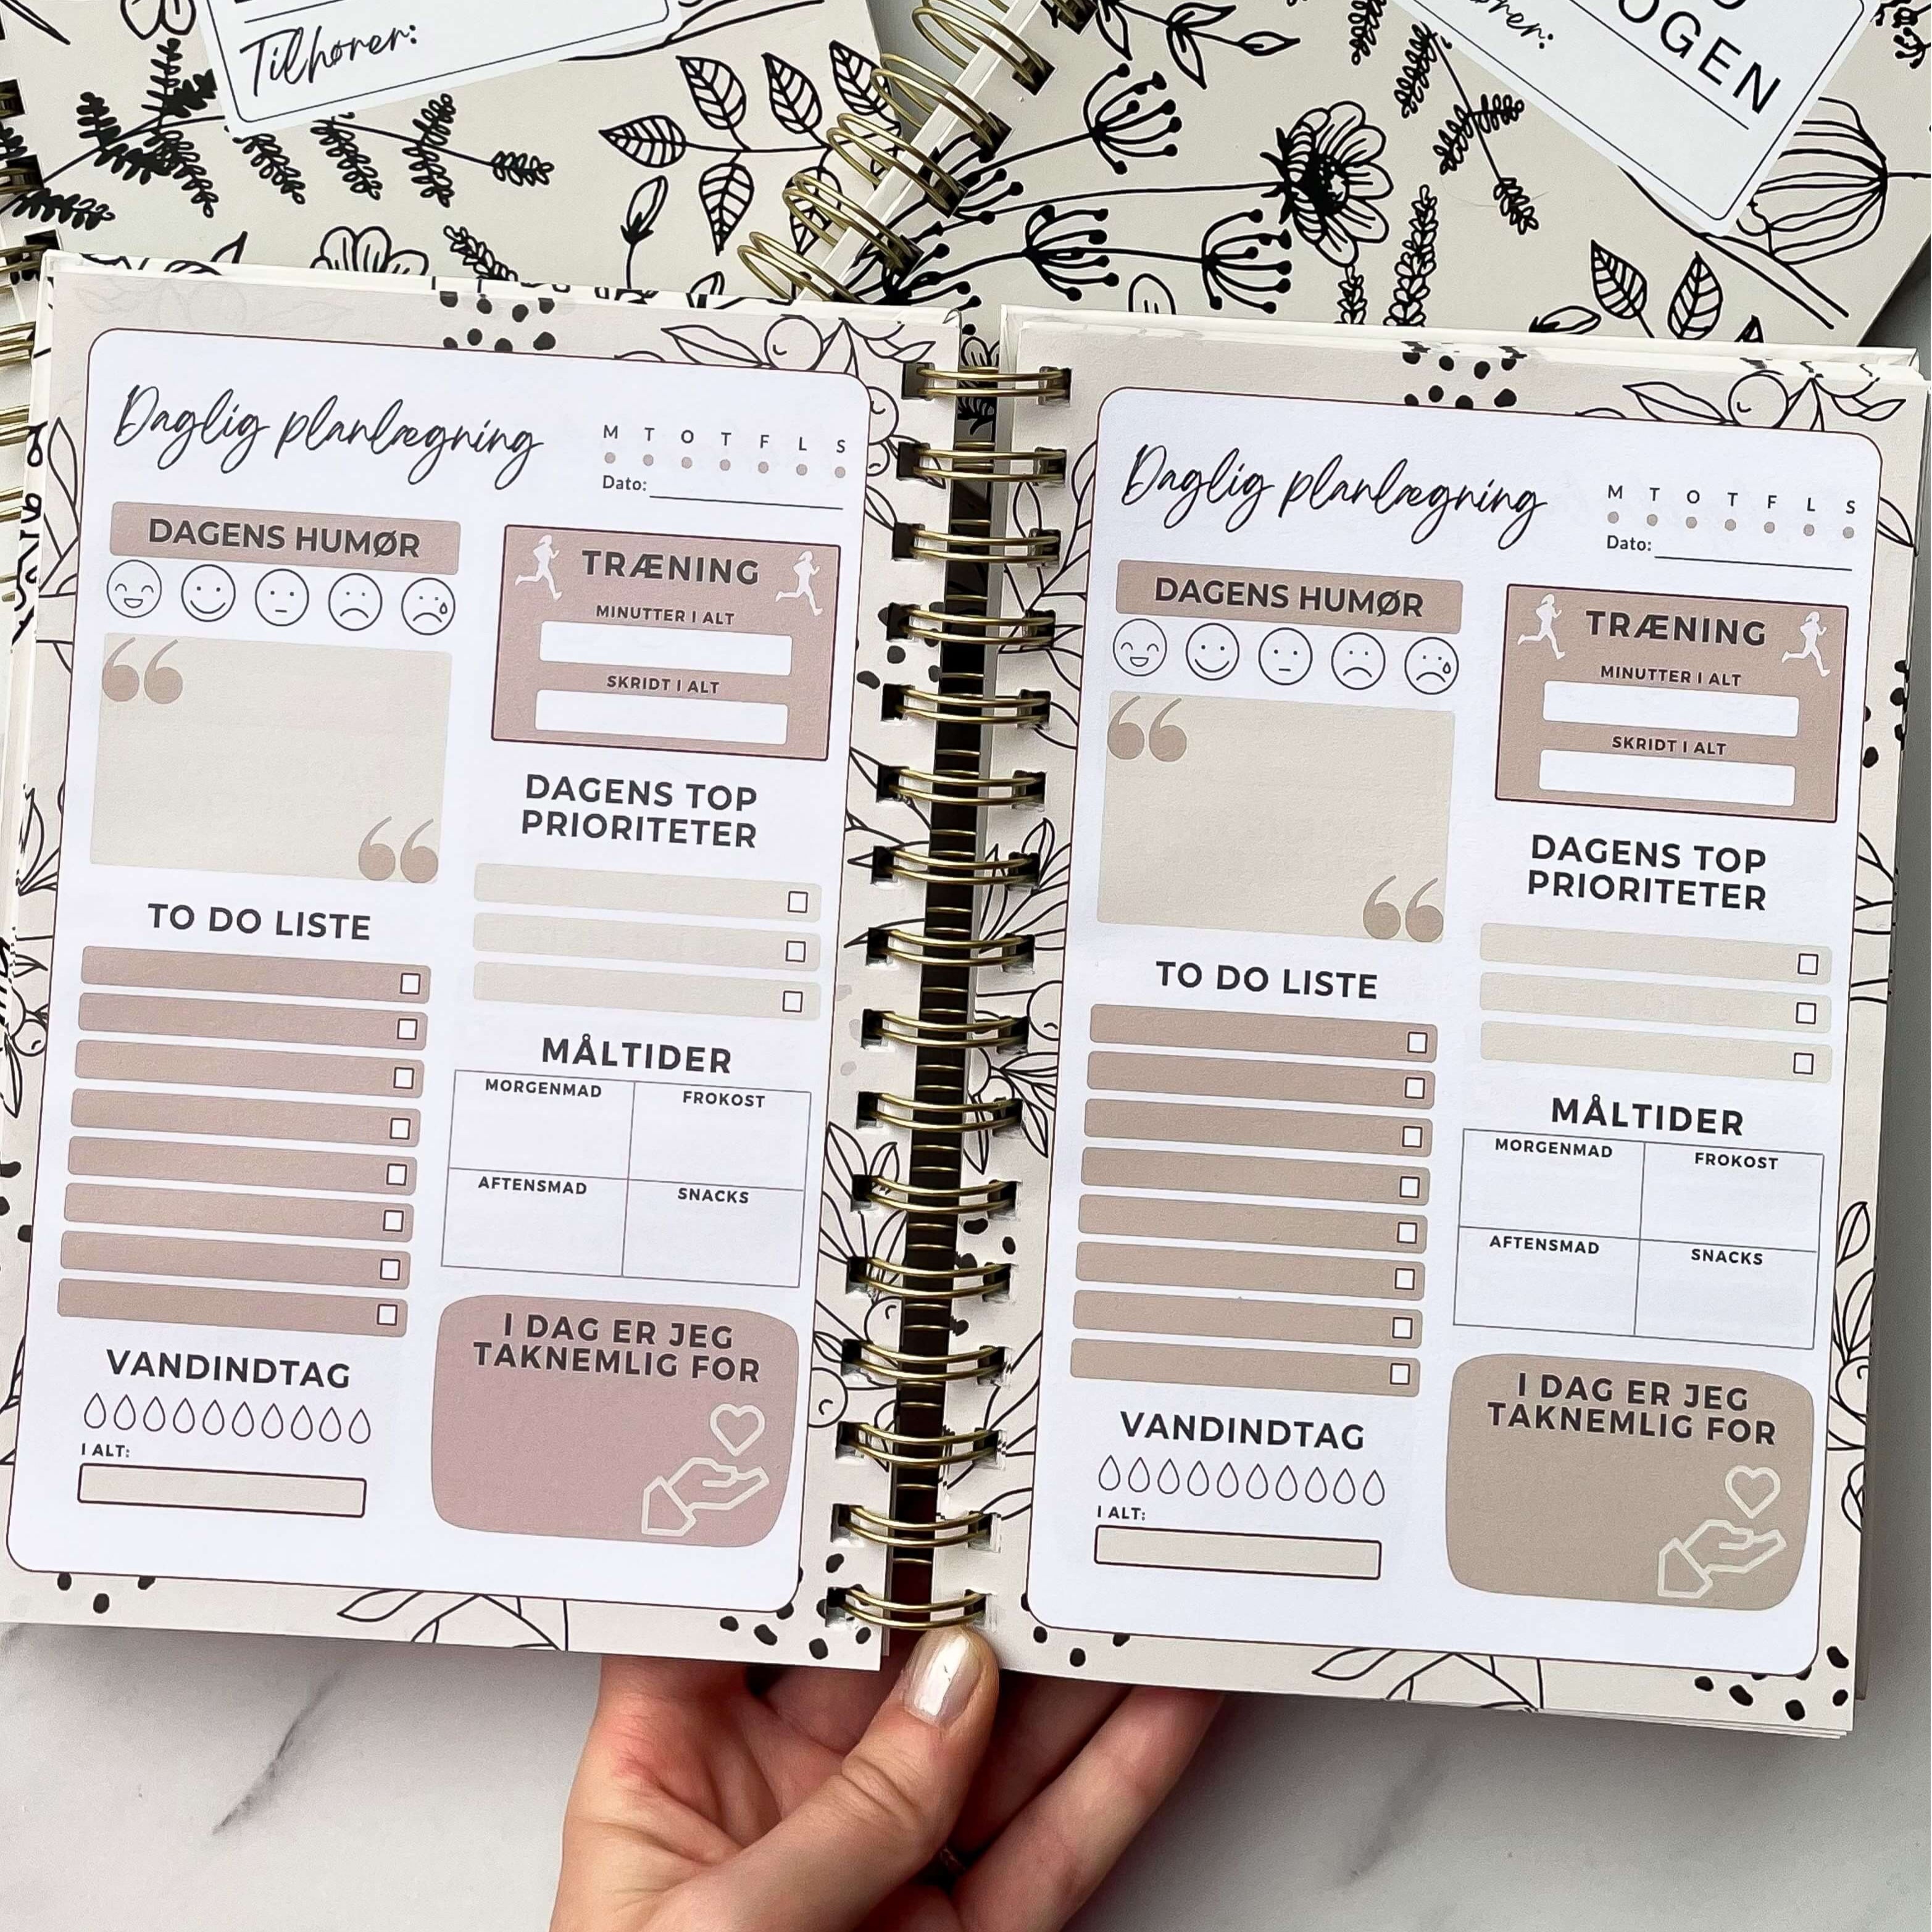 Tilhører:
OGEN
Daglig planlægning
M T O T F L S
Dato:
DAGENS HUMØR
TRÆNING
MINUTTER I ALT
SKRIDT I ALT
“
“
DAGENS TOP
PRIORITETER
TO DO LISTE
MÅLTIDER
MORGENMAD FROKOST
AFTENSMAD SNACKS
VANDINDTAG
I ALT:
I DAG ER JEG
TAKNEMLIG FOR
Daglig planlægning
M T O T F L S
Dato:
DAGENS HUMØR
TRÆNING
MINUTTER I ALT
SKRIDT I ALT
“
“
DAGENS TOP
PRIORITETER
TO DO LISTE
MÅLTIDER
MORGENMAD FROKOST
AFTENSMAD SNACKS
VANDINDTAG
I ALT:
I DAG ER JEG
TAKNEMLIG FOR